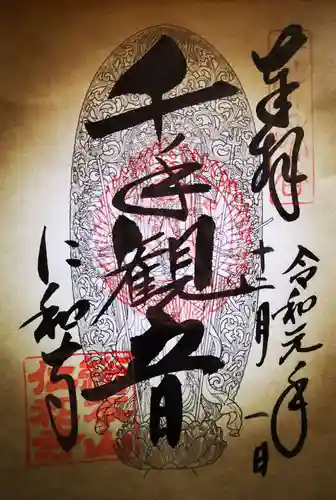 奉拝
令和元年
十一月一日
千手観音
仁和寺